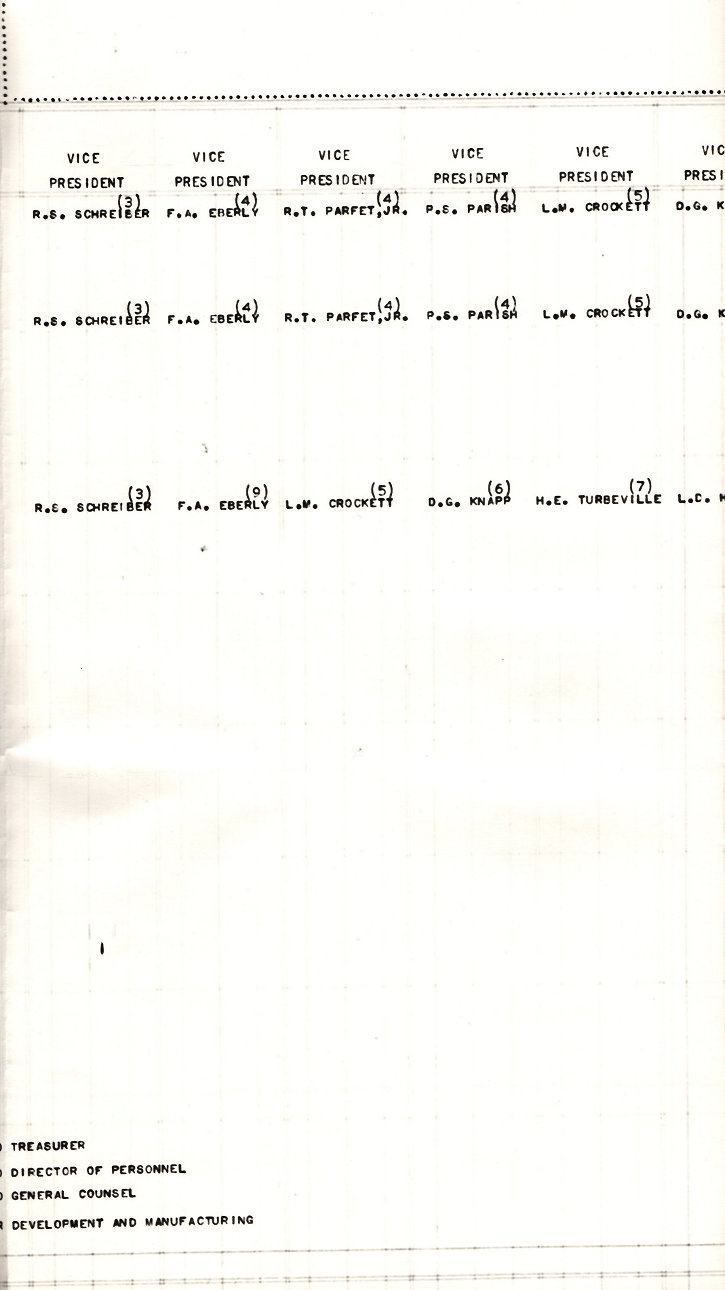 VICE VICE VICE VICE VICE VIC
PRESIDENT PRESIDENT PRESIDENT PRESIDENT PRESIDENT PRESI
(3) (4) (4) (4) (5)
R.S. SCHREIBER F.A. EBERLY R.T. PARFET,JR. P.S. PARISH L.M. CROCKETT D.G. K
(3) (4) (4) (4) (5)
R.S. SCHREIBER F.A. EBERLY R.T. PARFET,JR. P.S. PARISH L.M. CROCKETT D.G. K
(3) (9) (5) (6) (7)
R.S. SCHREIBER F.A. EBERLY L.M. CROCKETT D.G. KNAPP H.E. TURBEVILLE L.C. H
) TREASURER
) DIRECTOR OF PERSONNEL
) GENERAL COUNSEL
R DEVELOPMENT AND MANUFACTURING